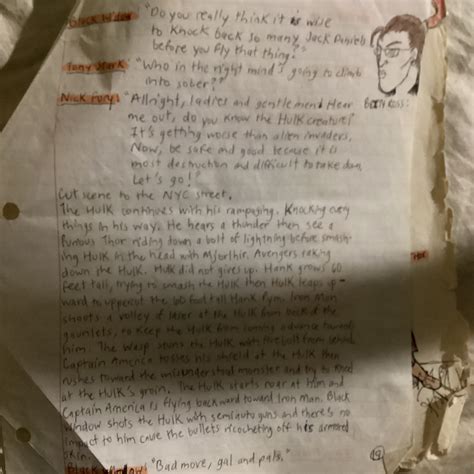 Black Widow: "Do you really think it is wise
to knock back so many Jack Daniels
before you fly that thing?"
Tony Stark: "Who in the right mind's going to climb
into sober?"
Nick Fury: "Allright, ladies and gentlemen! Hear
me out, do you know the Hulk creature?
It's getting worse than alien invaders,
Now, be safe and good because it is
most destruction and difficult to take down
Let's go!"
Betty Ross:
Cut scene to the NYC street.
The Hulk continues with his rampaging. Knocking every
things in his way. He hears a thunder then see a
furious Thor riding down a bolt of lightning before smash-
ing Hulk in the head with Mjorlhir. Avengers taking
down the Hulk. Hulk did not gives up. Hank grows 60
feet tall, trying to smash the Hulk then Hulk leaps up-
ward to uppercut the 60 foot tall Hank Pym. Iron Man
shoots a volley of laser at the Hulk from back of the
gauntlets, to keep the Hulk from coming advance towards
him. The Wasp stuns the Hulk with fireball from behind.
Captain America tosses his shield at the Hulk then
rushes toward the misunderstood monster and try to kneed
at the Hulk's groin. The Hulk starts roar at him and
Captain America is flying backward toward Iron Man. Black
Window shots the Hulk with semiauto guns and there is no
impact to him cause the bullets ricocheting off his armored
skin.
Black Window: "Bad move, gal and pals."